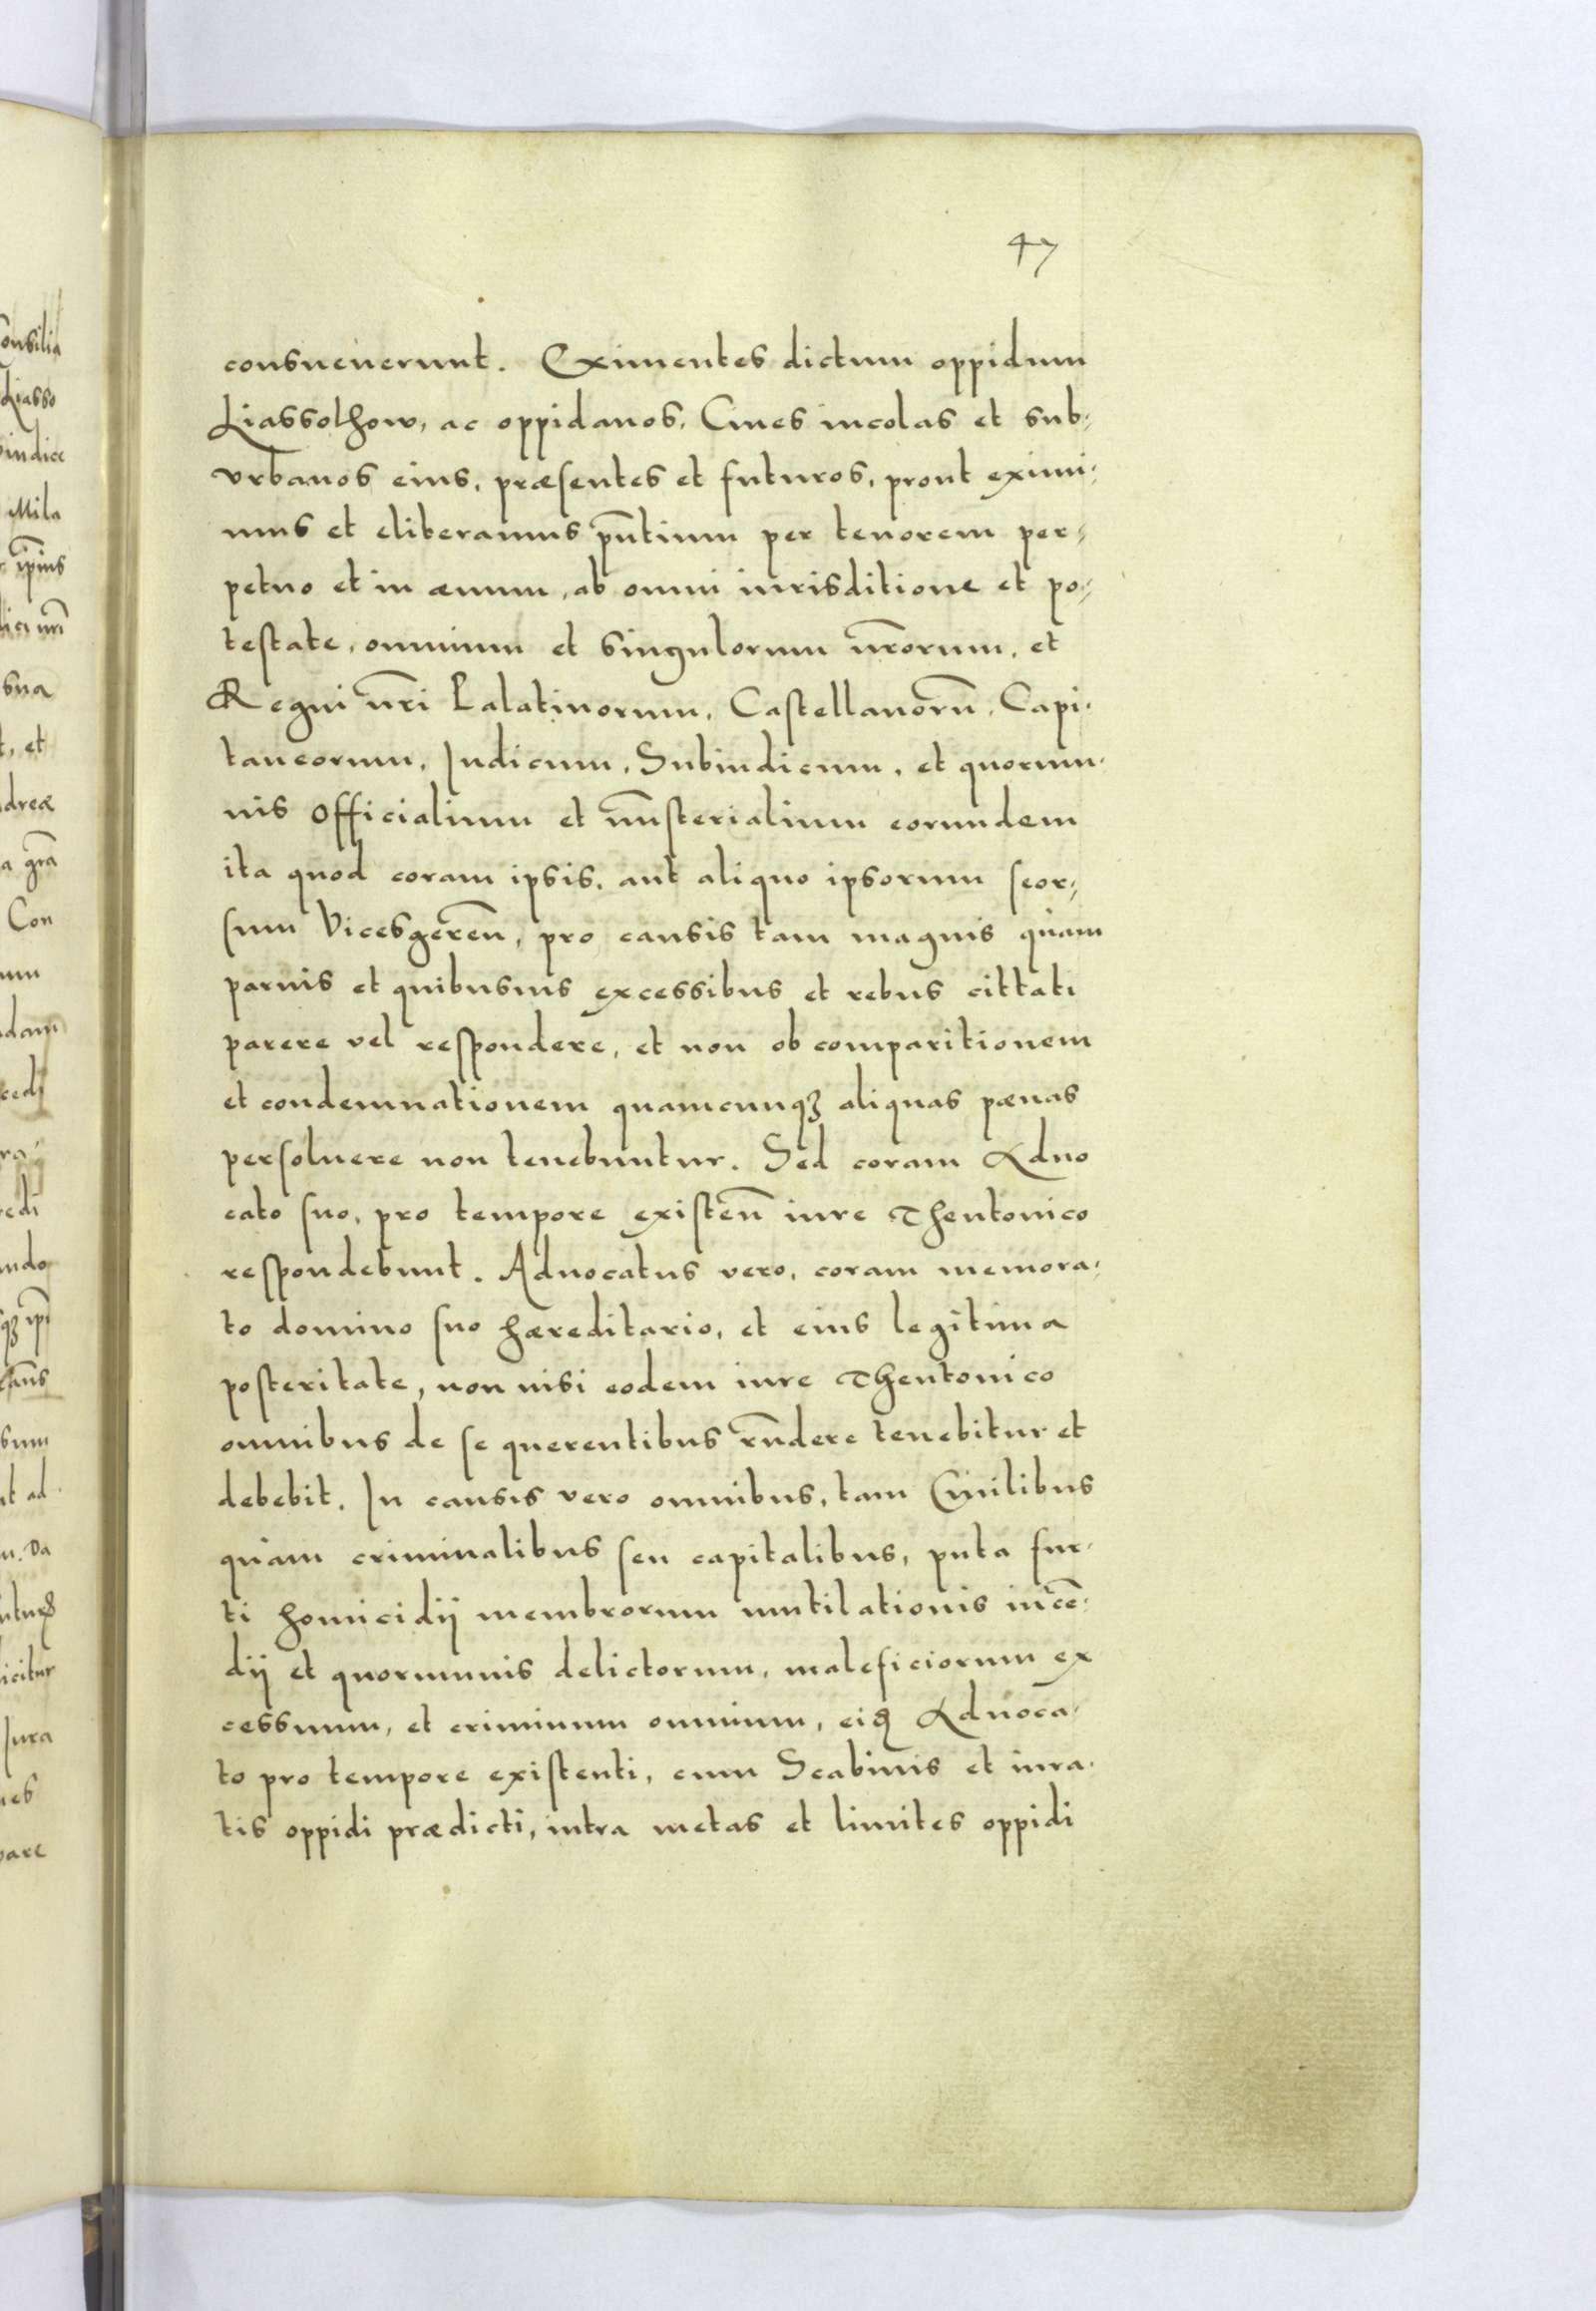 47
consueuerunt. Eximentes dictum oppidum
Liassolhow, ac oppidanos, Ciues incolas et sub⸗
vrbanos eius, præsentes et futuros, prout eximi⸗
mus et eliberamus pn̄tium per tenorem per⸗
petuo et in æuum, ab omni iurisditione et po⸗
testate, omnium et singulorum nr̄orum, et
Regni nr̄i Palatinorum, Castellanorū, Capi⸗
taneorum, Iudicum, Subiudicum, et quorum⸗
uis officialium et mn̄sterialium eorundem
ita quod coram ipsis, aut aliquo ipsorum seor⸗
sum Vicesgeren̄, pro causis tam magnis quàm
paruis et quibusuis excessibus et rebus cittati
parere vel respondere, et non ob comparitionem
et condemnationem quamcunqꝫ aliquas pænas
persoluere non tenebuntur. Sed coram Aduo
cato suo, pro tempore existen̄ iure Theutonico
respondebunt. Aduocatus vero, coram memora⸗
to domino suo hæreditario, et eius legitima
posteritate, non nisi eodem iure Theutonico
omnibus de se querentibus rn̄dere tenebitur et
debebit. In causis vero omnibus, tam Ciuilibus
quàm criminalibus seu capitalibus, puta fur⸗
ti homicidij membrorum mutilationis incē⸗
dij et quorumuis delictorum, maleficiorum ex
cessuum, et criminum omnium, eiꝗ Aduoca⸗
to pro tempore existenti, cum Scabinis et iura⸗
tis oppidi prædicti, intra metas et limites oppidi